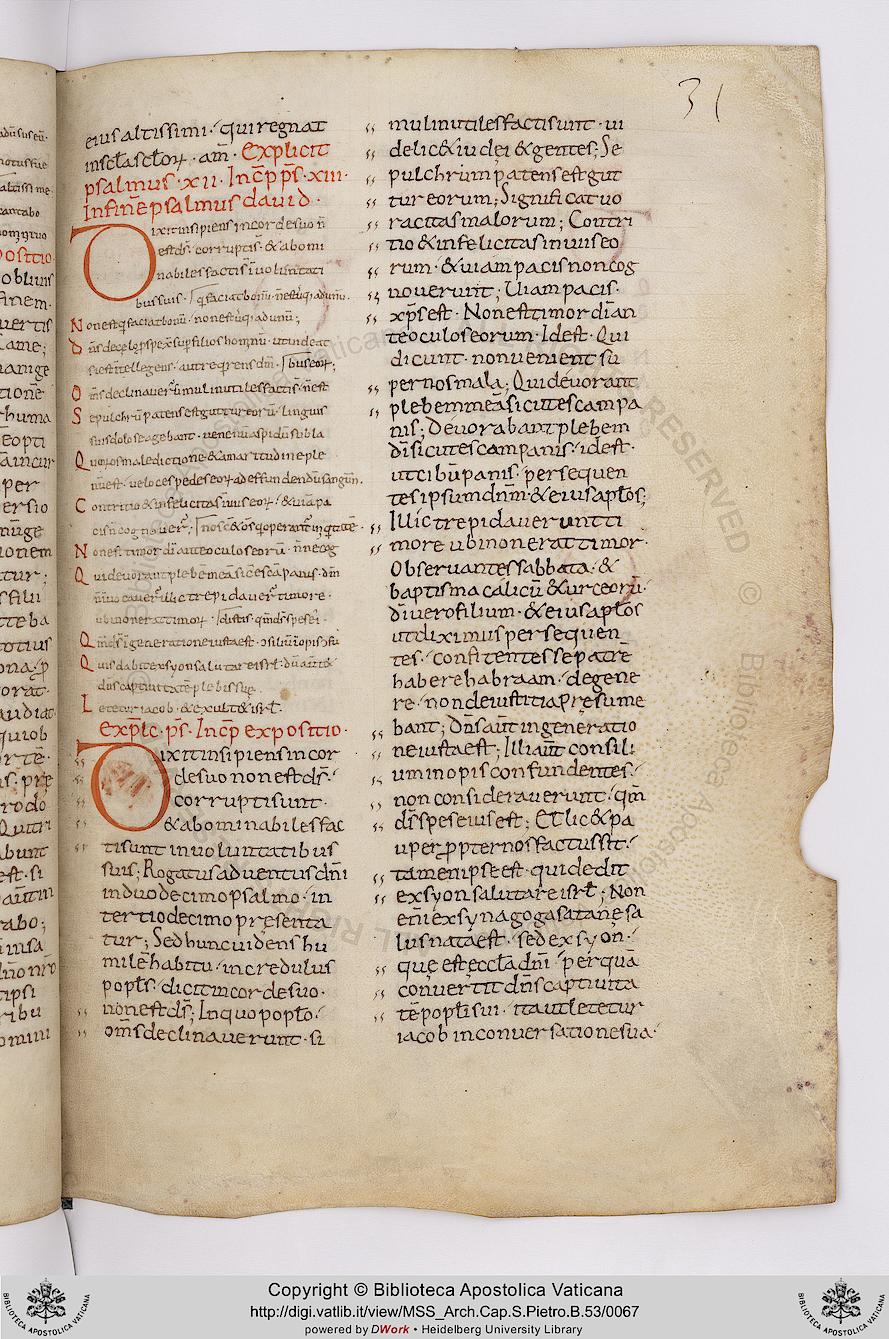 31
eius altissimi · qui regnat
in scła scłoꝝ · am̄ · Explicit
psalmus · xii · Incp̄ ps̄ · xiii ·
In finē psalmus david ·
Dixit insipiens in corde suo n̄
est ds̄ · corrupti s̄ · & abomi
nabiles facti s̄ ī voluntati
bus suis ·
Non est q̄ faciat bonū · non est usq; ad unū ;
sі est intellegens · aut requirens dm̄ ·
Om̄s declinaver̄ simul inutiles facti s̄ · n̄ est
Sepulchrū patens est guttur eorū · linguis
suis dolose agebant · venenū aspidū sub la
Quorū os maledictione & amaritudine ple
nū est · veloces pedes eoꝝ ad effundendū sanguin̄ ·
Contritio & infelicitas ī viis eoꝝ · & viā pa
cis n̄ cognover̄ ;
Non est timor dī ante oculos eorū · n̄ne cog
Qui devorant plebē meā sic escā panis · dm̄
n̄ īvocaver̄ · illic trepidaver̄ timore ·
ubi non erat timor ·
Qm̄ ds̄ ī generatione iusta est ·
Quis dabit ex syon salutare isrł · dū av̄tit
dn̄s captivitatē plebis suę ·
Letetur iacob · & exult& isrł ·
Expłic · ps̄ · Incp̄ expositio ·
Dixit insipiens in cor
de suo non est ds̄ ·
corrupti sunt ·
& abominabiles fac
ti sunt in voluntatibus
suis ; Rogatus adventus dn̄i
in duodecimo psalmo · in
tertio decimo presenta
tur ; Sed hunc videns hu
milē habitu · incredulus
popłs · dicit in corde suo ·
non est ds̄ ; In quo popło ·
om̄s declinaverunt · si
mul inutiles facti sunt · vi
delic& iudei & gentes ; Se
pulchrum patens est gut
tur eorum ; Significat vo
racitas malorum ; Contri
tio & infelicitas in viis eo
rum · & viam pacis non cog
noverunt ; Viam pacis ·
xp̄s est · Non est timor dī an
te oculos eorum · Idest · Qui
dicunt · non venient su
per nos mala ; Qui devorant
plebem meā sicut escam pa
nis ; Devorabant plebem
dī sicut escam panis · idest ·
ut cibū panis · persequen
tes ipsum dnm̄ · & eius apłos ;
Illic trepidaverunt ti
more ubi non erat timor ·
Observantes sabbata · &
baptisma calicū & urceorū ·
dī vero filium · & eius apłos
ut diximus persequen
tes · confitentes se patrē
habere habraam · degene
re · non de iustitia presume
bant ; Dn̄s aut̄ in generatio
ne iusta est ; Illi aut̄ consili
um inopis confundentes ·
non consideraverunt · qm̄
ds̄ spes eius est ; Et lic& pa
uper propter nos factus sit ·
tamen ipse est · qui dedit
ex syon salutare isrł ; Non
en̄i ex synagoga satanę sa
lus nata est · sed ex syon ·
quę est ęccła dm̄i · per quā
convertit dn̄s captivita
tē popłi sui · ita ut letetur
iacob in conversatione sua ·
Copyright © Biblioteca Apostolica Vaticana
http://digi.vatlib.it/view/MSS_Arch.Cap.S.Pietro.B.53/0067
powered by DWork • Heidelberg University Library